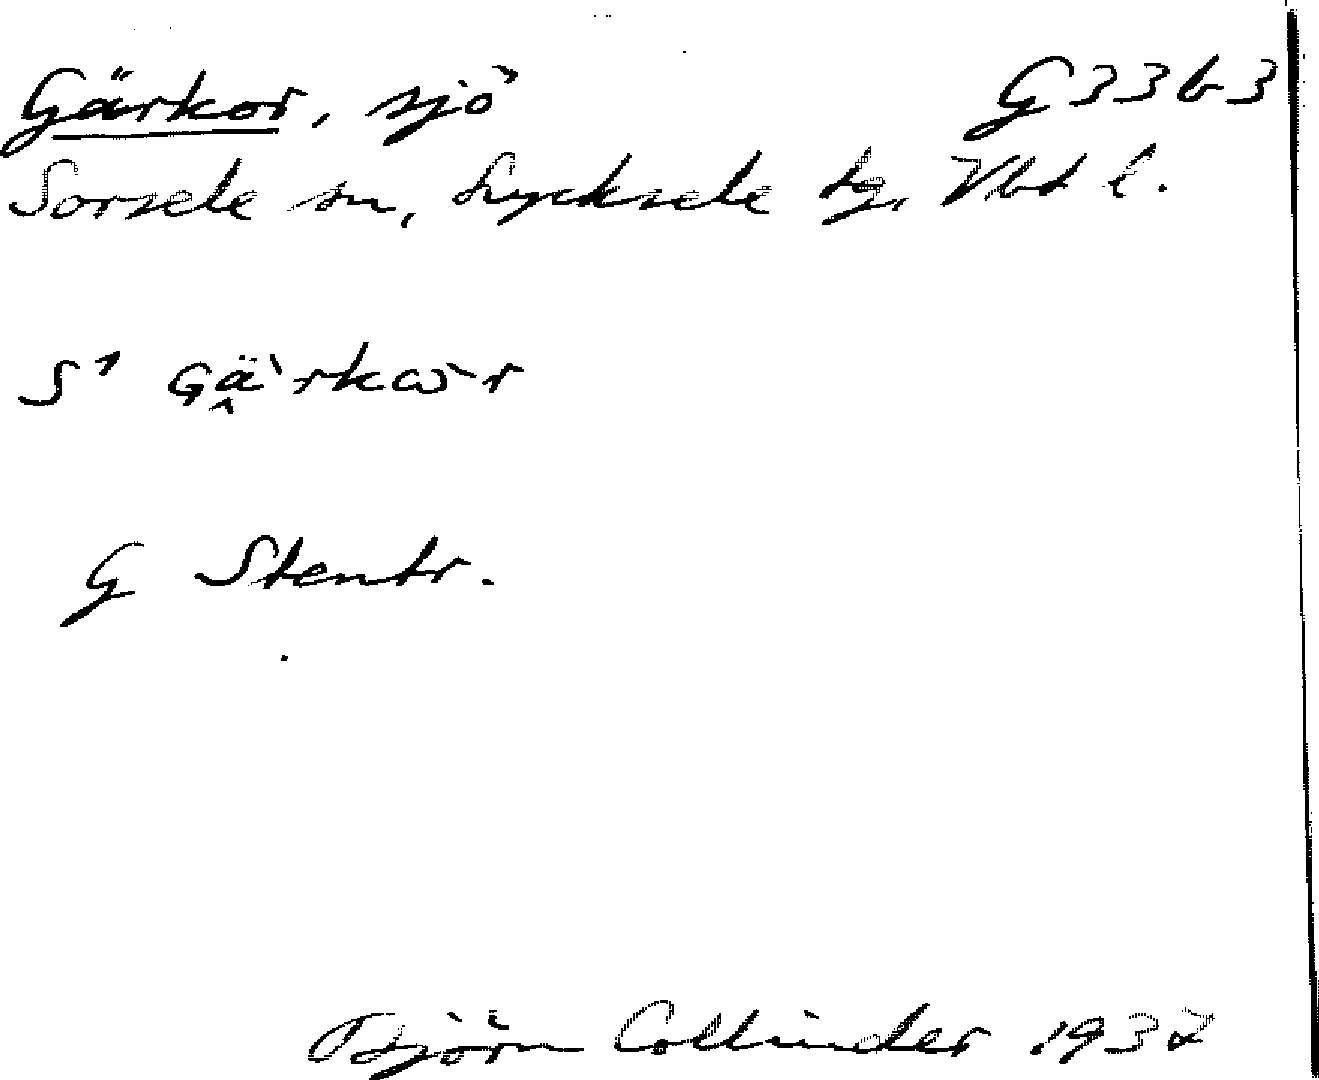 Gärkor, sjö G 33 b 3
Sorsele sn, Lycksele tg, Vbt l.
S' Gä̭'rkω̄r
G Stentr.
Björn Collinder 1937